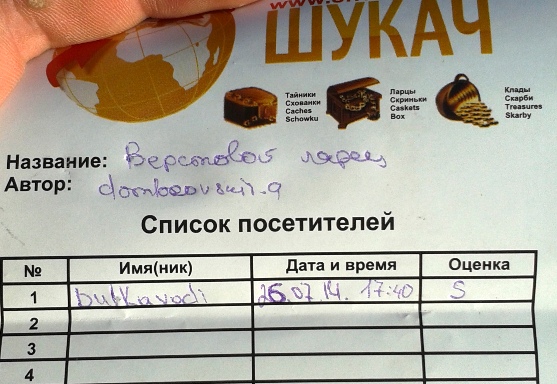 ШУКАЧ
Тайники
Схованки
Caches
Schowku
Ларцы
Скриньки
Caskets
Box
Клады
Скарби
Treasures
Skarby
Название: Верстовой ларец
Автор: dombrovskii.a
Список посетителей
№ Имя(ник) Дата и время Оценка
1 butkavodi 26.07.14. 17:40 5
2
3
4